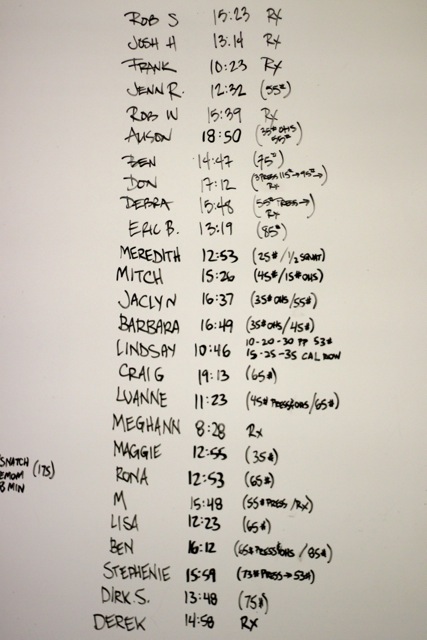 ROB S 15:23 Rx
JOSH H 13:14 Rx
FRANK 10:23 Rx
JENN R. 12:32 (55#)
ROB W 15:39 Rx
ALISON 18:50 (35# OHS 55#)
BEN 14:47 (75#)
DON 17:12 (3 PRESS 115#→95#→) Rx
DEBRA 15:48 (55# PRESS→) Rx
ERIC B. 13:19 (85#)
MEREDITH 12:53 (25#/½ SQUAT)
MITCH 15:26 (45#/15# OHS)
JACLYN 16:37 (35# OHS/55#)
BARBARA 16:49 (35# OHS/45#)
LINDSAY 10:46 10-20-30 PP 53#
15-25-35 CAL ROW
CRAIG 19:13 (65#)
LUANNE 11:23 (45# /65#)
MEGHANN 8:28 Rx
MAGGIE 12:55 (35#)
SNATCH (175)
EMOM
8 MIN
RONA 12:53 (65#)
M 15:48 (55# PRESS/RX)
LISA 12:23 (65#)
BEN 16:12 (65# /85#)
STEPHENIE 15:59 (73# PRESS→53#)
DIRK S. 13:48 (75#)
DEREK 14:58 Rx